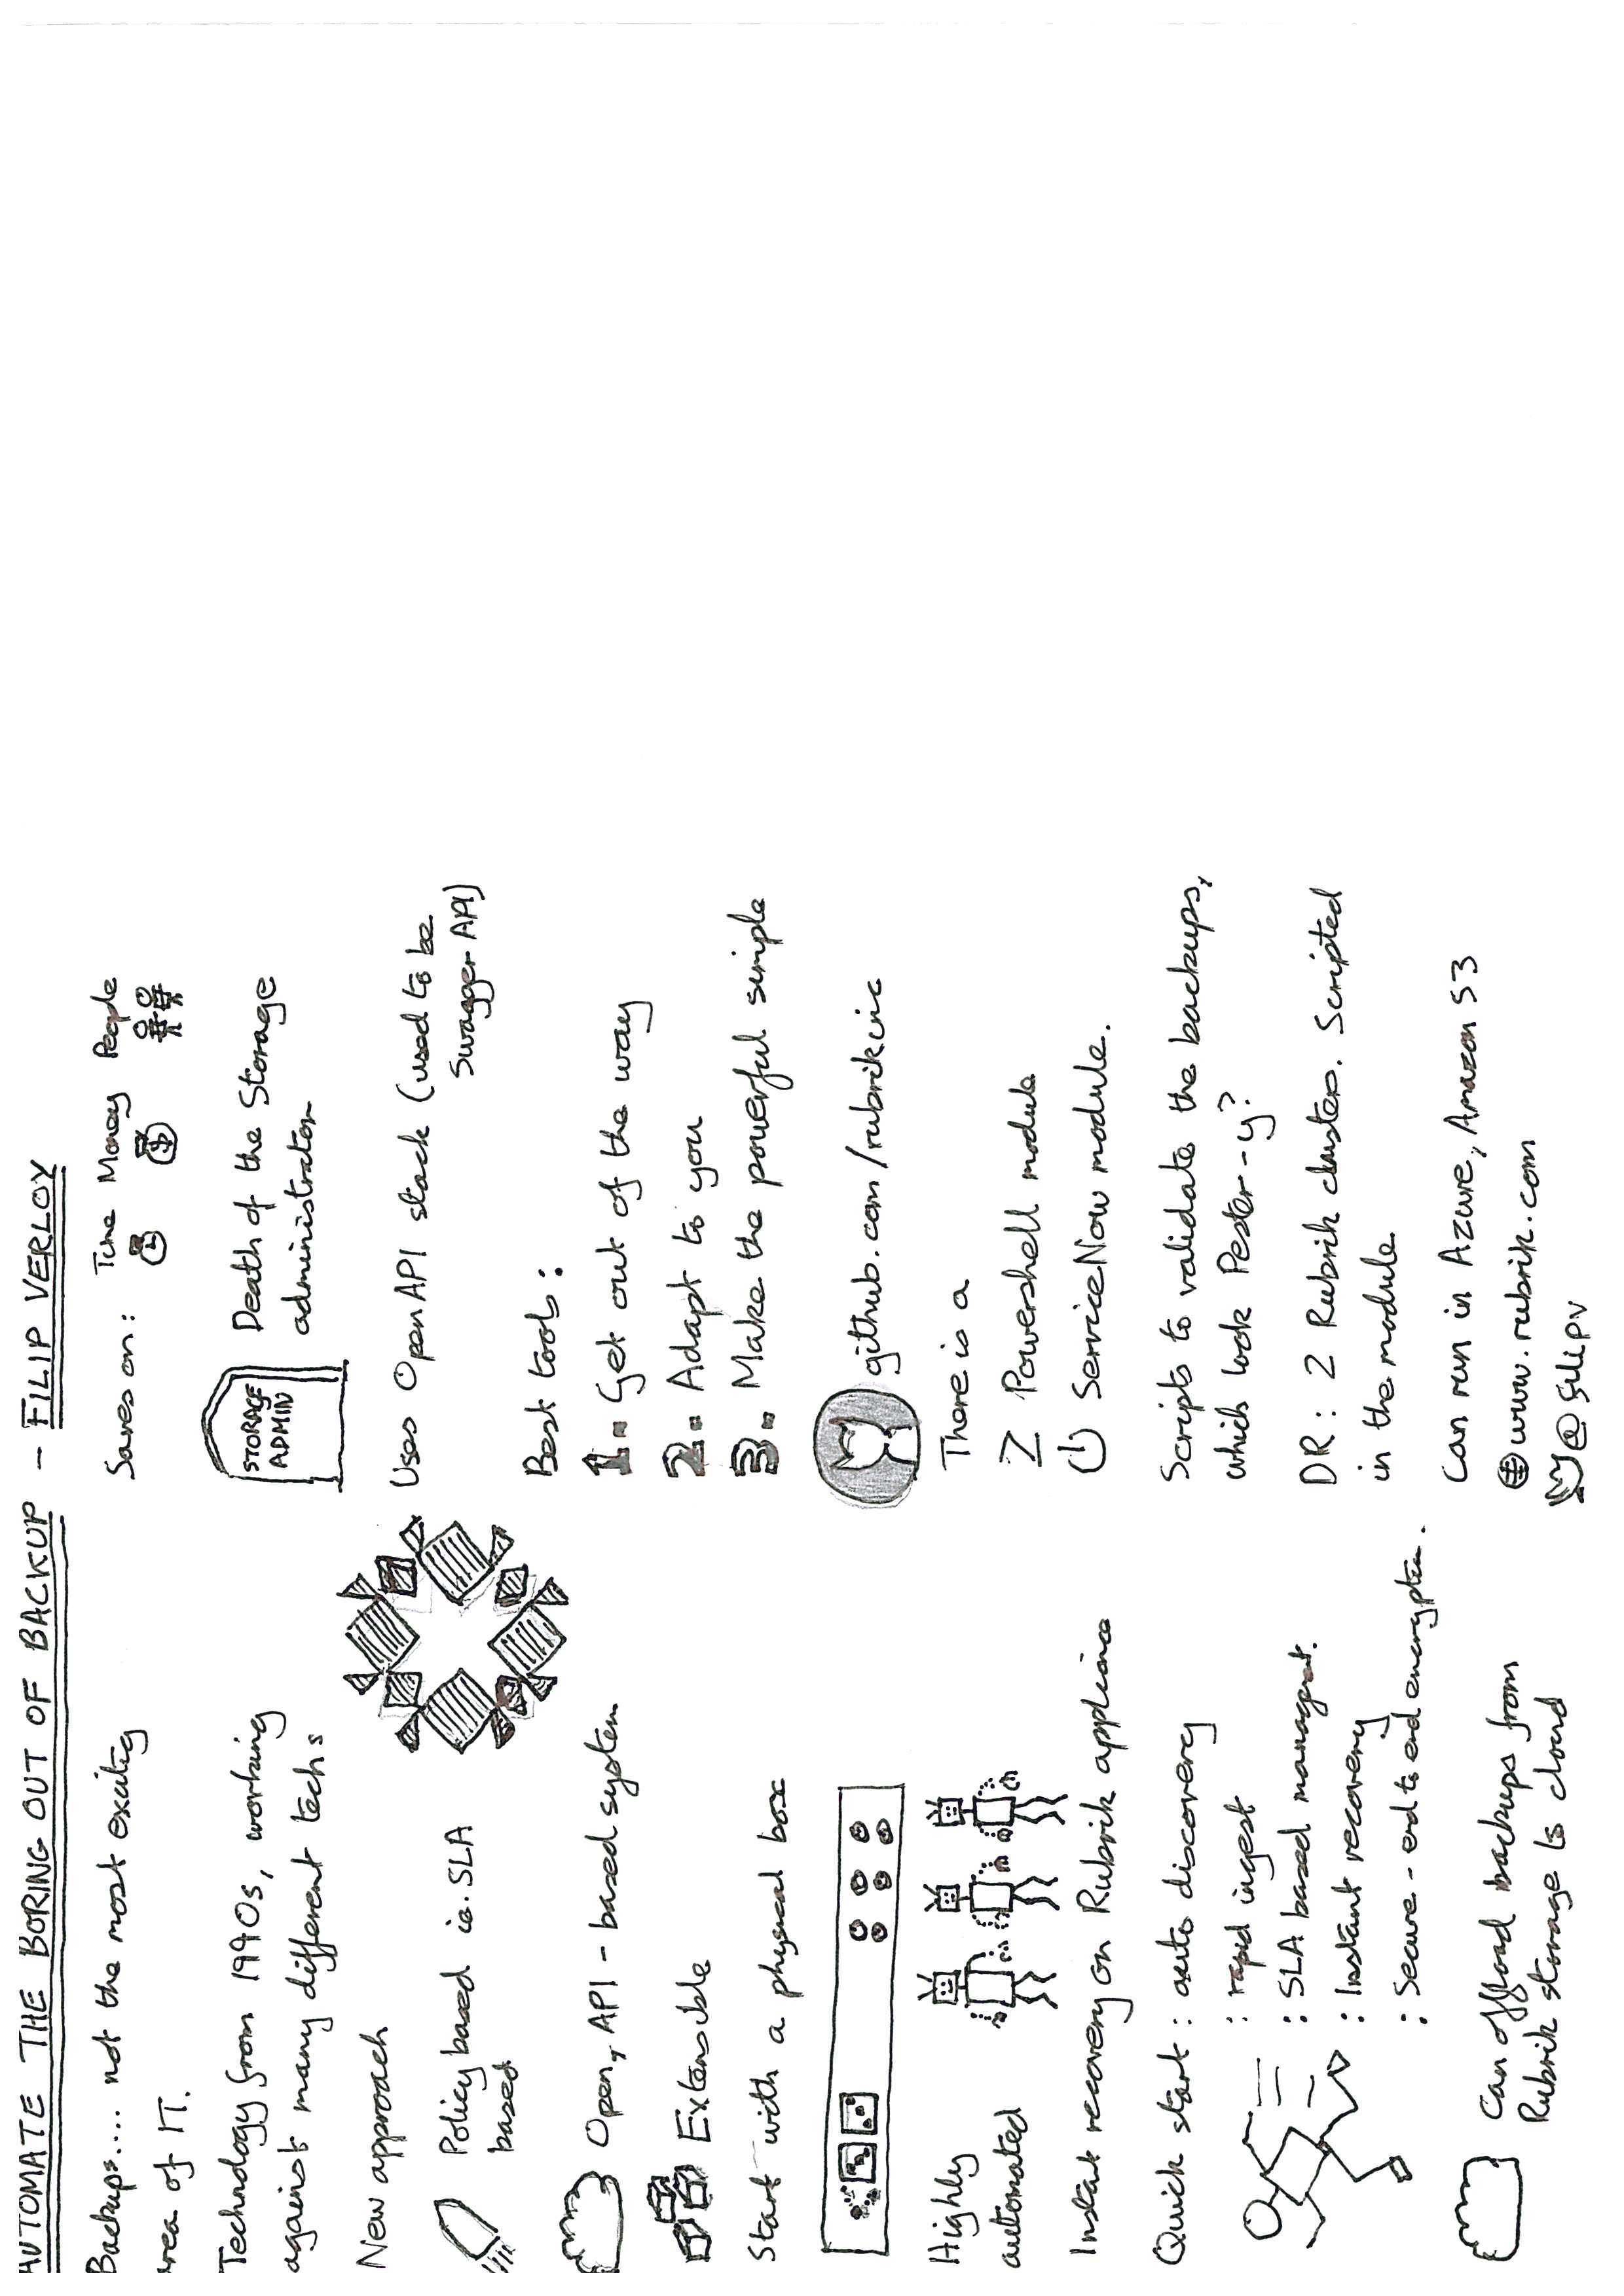 AUTOMATE THE BORING OUT OF BACKUP - FILIP VERLOY
Backups.... not the most exciting
area of IT.
Technology from 1990s, working
against many different techs
New approach
Policy based ie. SLA
based
Open, API - based system
Extensible
Start with a physical box
Highly
automated
Instant recovery on Rubrik appliance
Quick start : auto discovery
: rapid ingest
: SLA based managemt.
: Instant recovery
: Secure - end to end encryption.
Can offload backups from
Rubrik storage to cloud
Saves on: Time Money People
$
STORAGE
ADMIN
Death of the Storage
administrator
Uses OpenAPI stack (used to be
Swagger API)
Best tools:
1. Get out of the way
2. Adapt to you
3. Make the powerful simple
github.com/rubrikinc
There is a
Powershell module
ServiceNow module.
Scripts to validate the backups,
which look Pester-y?
DR: 2 Rubrik clusters. Scripted
in the module
Can run in Azure, Amazon S3
www.rubrik.com
@filipv